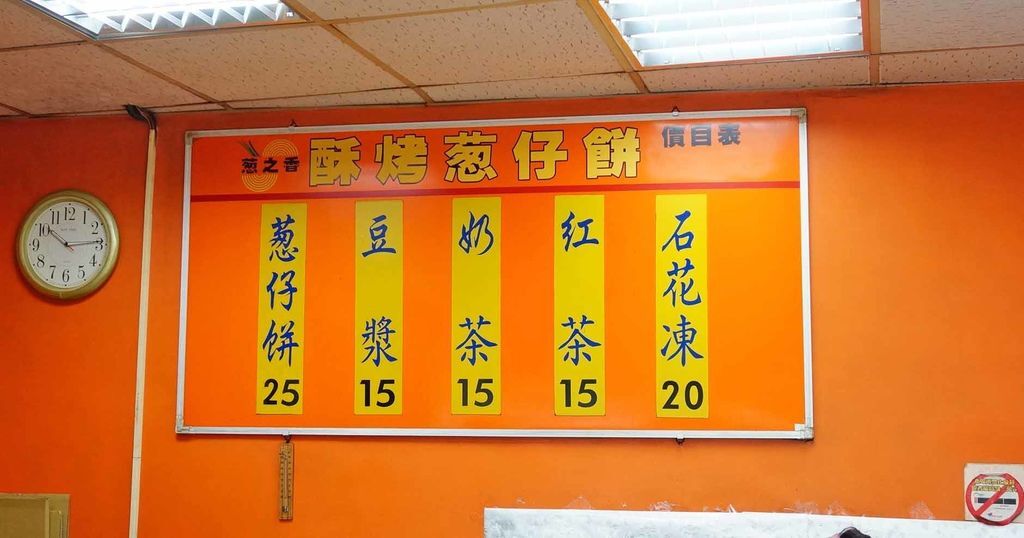 蔥之香
酥烤蔥仔餅
價目表
蔥仔餅 25
豆漿 15
奶茶 15
紅茶 15
石花凍 20
12
1
2
3
4
5
6
7
8
9
10
11